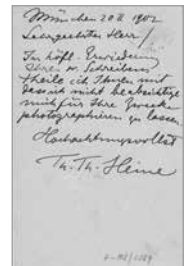 München 20 II 1902
Sehr geehrter Herr!
In höfl. Erwiderung
Ihres w. Schreibens
theile ich Ihnen mit
dass ich nicht beabsichtige
mich für Ihre Zwecke
photographieren zu lassen.
Hochachtungsvollst
Th. Th. Heine